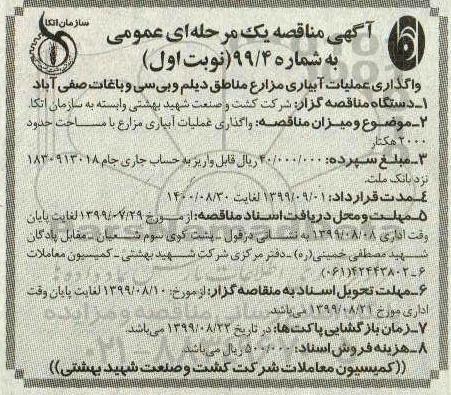 سازمان اتکا
آگهی مناقصه یک مرحله‌ای عمومی
به شماره ۹۹/۴ (نوبت اول)
واگذاری عملیات آبیاری مزارع مناطق دیلم و بی سی و باغات صفی آباد
۱ـ دستگاه مناقصه گزار: شرکت کشت و صنعت شهید بهشتی وابسته به سازمان اتکا.
۲ـ موضوع و میزان مناقصه: واگذاری عملیات آبیاری مزارع با مساحت حدود
۲۰۰۰ هکتار
۳ـ مبلغ سپرده: ۴۰/۰۰۰/۰۰۰ ریال قابل واریز به حساب جاری جام ۱۸۳۰۹۱۳۰۱۸
نزد بانک ملت.
۴ـ مدت قرارداد: ۱۳۹۹/۰۹/۰۱ لغایت ۱۴۰۰/۰۸/۳۰
۵ـ مهلت و محل دریافت اسناد مناقصه: از مورخ ۱۳۹۹/۰۷/۲۹ لغایت پایان
وقت اداری ۱۳۹۹/۰۸/۰۸ به نشانی دزفول ـ پشت کوی سوم شعبان ـ مقابل پادگان
شهید مصطفی خمینی(ره) ـ دفتر مرکزی شرکت شهید بهشتی ـ کمیسیون معاملات
۶ـ ۴۲۴۴۳۸۰۲(۰۶۱)
۶ـ مهلت تحویل اسناد به مناقصه گزار: از مورخ: ۱۳۹۹/۰۸/۱۰ لغایت پایان وقت
اداری مورخ ۱۳۹۹/۰۸/۲۱ می‌باشد.
۷ـ زمان بازگشایی پاکت‌ها: در تاریخ ۱۳۹۹/۰۸/۲۲ می‌باشد.
۸ـ هزینه فروش اسناد: ۵۰۰/۰۰۰ ریال می‌باشد.
((کمیسیون معاملات شرکت کشت و صنعت شهید بهشتی))